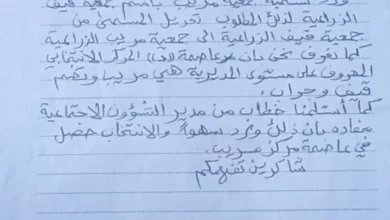 ورد تسمية جمعية مريب باسم جمعية قيف
الزراعية لذلك المطلوب تعديل المسمى من
جمعية قيف الزراعية الى جمعية مريب الزراعية
كما نعرف نحن بان عاصمة المركز الانتخابي
المعروف على مستوى المديرية هي مريب وتضم
قيف وجراب.
كما أستلمنا خطاب من مدير الشؤون الاجتماعية
مفاده بان ذلك ورد سهواً والانتخاب حصل
في عاصمة مركز مريب.
شاكرين تفهمكم